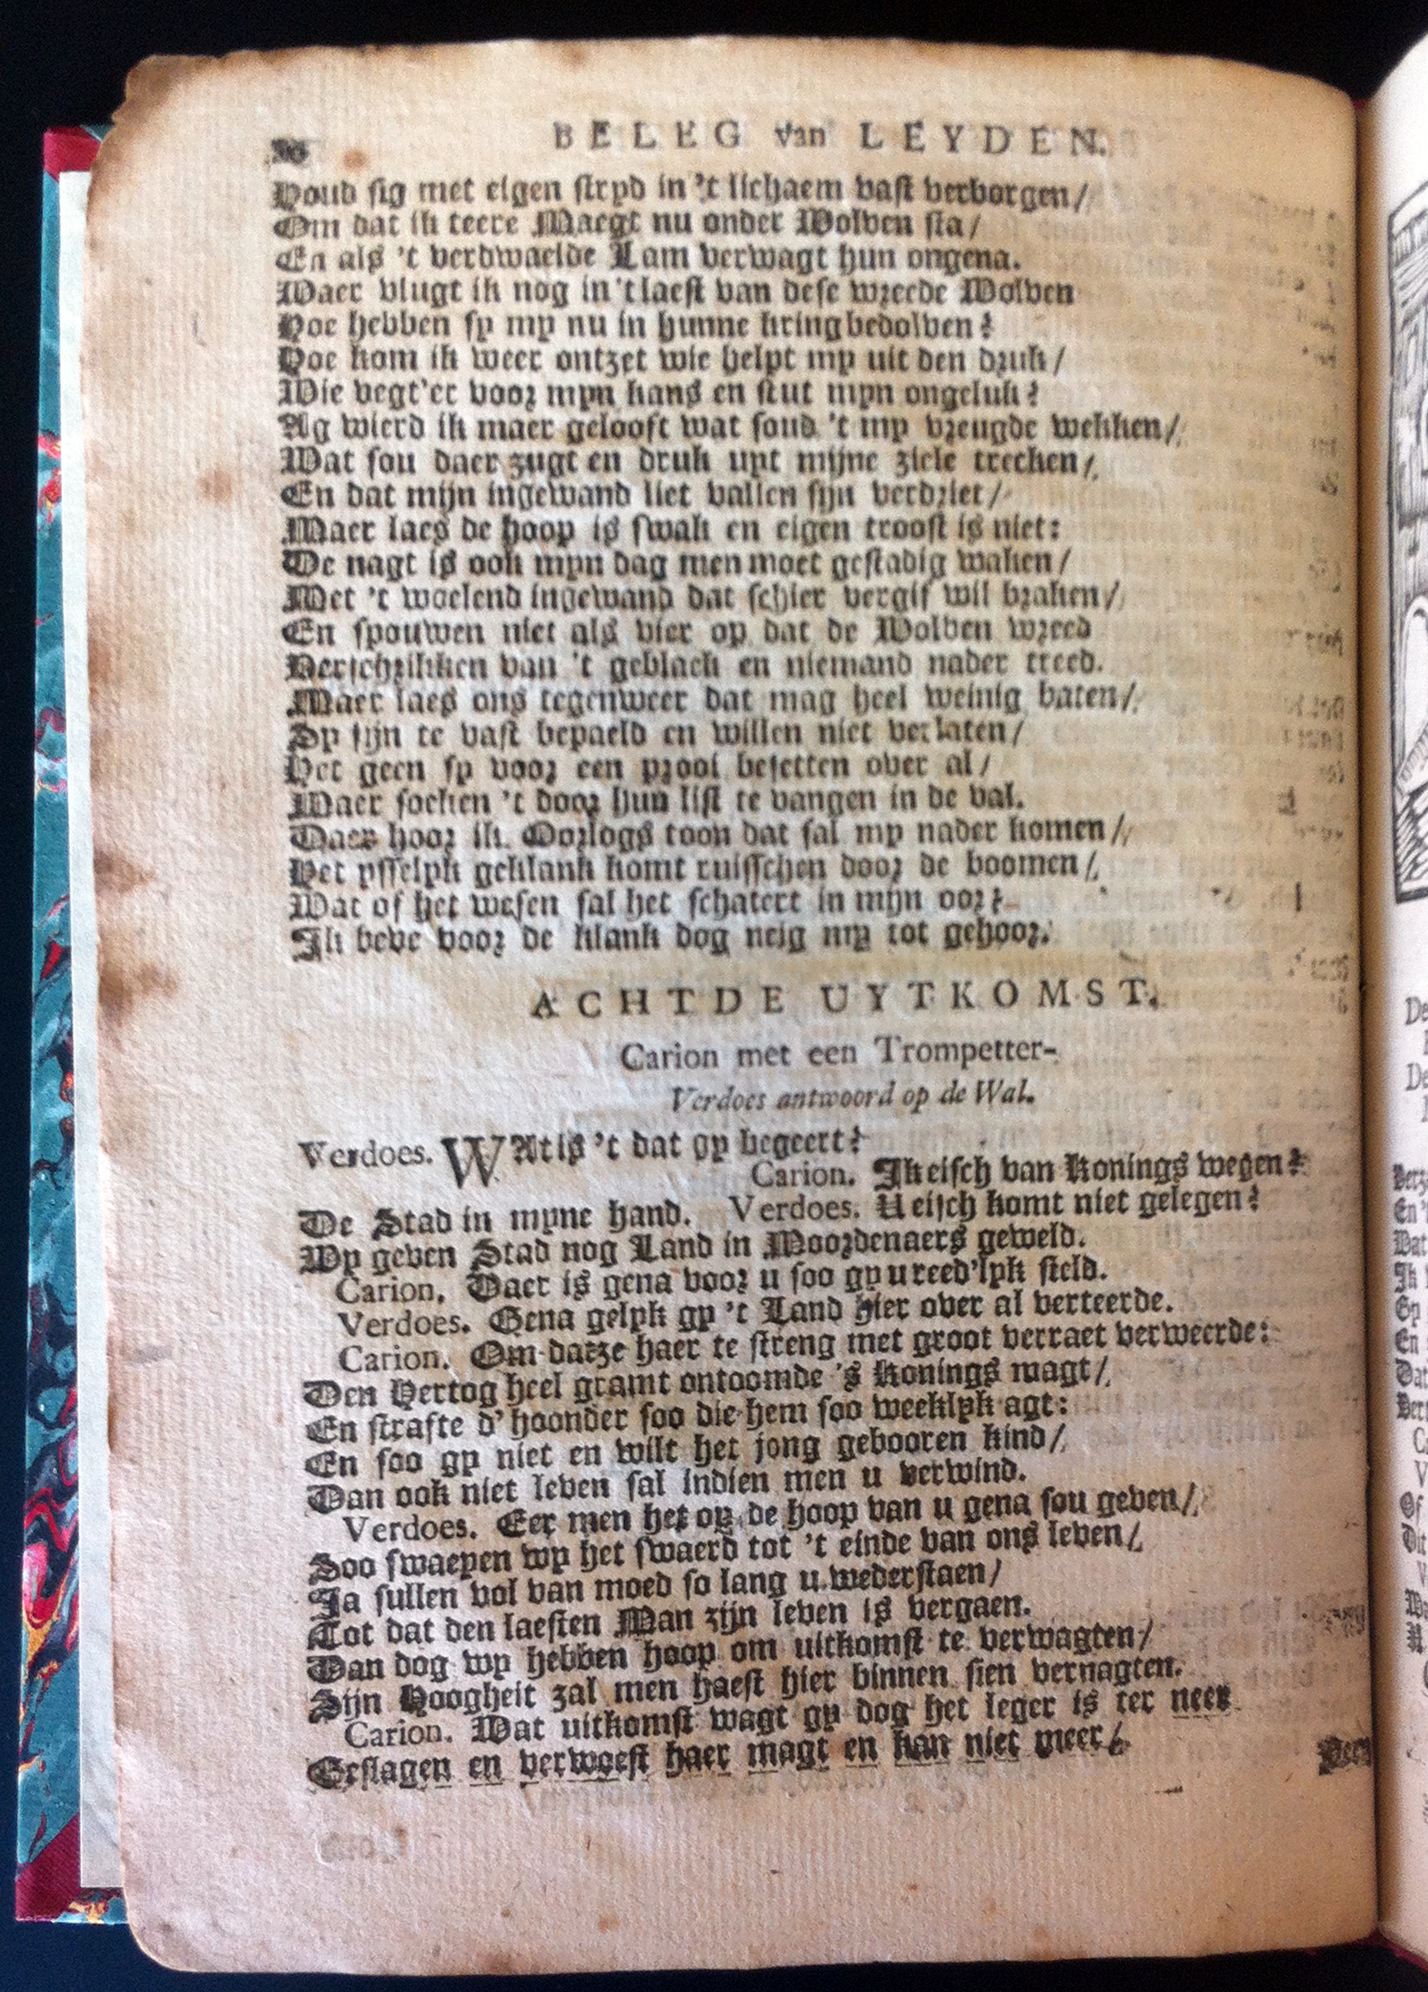 BELEG van LEYDEN.
Houd sig met eigen stryd in 't lichaem vast verborgen/
Om dat ik teere Maegt nu onder Wolven sta/
En als 't verdwaelde Lam verwagt hun ongena.
Waer vlugt ik nog in 't laest van dese wreede Wolven
Hoe hebben sy my nu in hunne kring bedolven?
Hoe kom ik weer ontzet wie helpt my uit den druk/
Wie vegt'er voor myn kans en stut myn ongeluk?
Ag wierd ik maer gelooft wat soud 't my vreugde wekken/
Wat sou daer zugt en druk uyt mijne ziele trecken/
En dat mijn ingewand liet vallen sijn verdriet/
Maer laes de hoop is swak en eigen troost is niet:
De nagt is ook myn dag men moet gestadig waken/
Met 't woelend ingewand dat schier vergif wil braken/
En spouwen niet als vier op dat de Wolven wreed
Verschrikken van 't geblack en niemand nader treed.
Maer laes ons tegenweer dat mag heel weinig baten/
Sy sijn te vast bepaeld en willen niet verlaten/
Het geen sy voor een prooi besetten over al/
Maer soeken 't door hun list te vangen in de val.
Daer hoor ik Oorlogs toon dat sal my nader komen/
Het ysselyk geklank komt ruisschen door de boomen/
Wat of het wesen sal het schatert in mijn oor?
Ik beve voor de klank dog neig my tot gehoor.
ACHTDE UYTKOMST.
Carion met een Trompetter-
Verdoes antwoord op de Wal.
Verdoes. WAt is 't dat gy begeert?
Carion. Ik eisch van Konings wegen?
De Stad in myne hand. Verdoes. U eisch komt niet gelegen?
Wy geven Stad nog Land in Moordenaers geweld.
Carion. Daer is gena voor u soo gy u reed'lyk steld.
Verdoes. Gena gelyk gy 't Land hier over al verteerde.
Carion. Om datze haer te streng met groot verraet verweerde:
Den Hertog heel gramt ontoomde 's Konings magt/
En strafte d' hoonder soo die hem soo weeklyk agt:
En soo gy niet en wilt het jong gebooren kind/
Dan ook niet leven sal indien men u verwind.
Verdoes. Eer men het op de hoop van u gena sou geven/
Soo swaeyen wy het swaerd tot 't einde van ons leven/
Ja sullen vol van moed so lang u wederstaen/
Tot dat den laesten Man zijn leven is vergaen.
Dan dog wy hebben hoop om uitkomst te verwagten/
Sijn Hoogheit zal men haest hier binnen sien vernagten.
Carion. Wat uitkomst wagt gy dog het leger is ter neer
Geslagen en verwoest haer magt en kan niet meer/